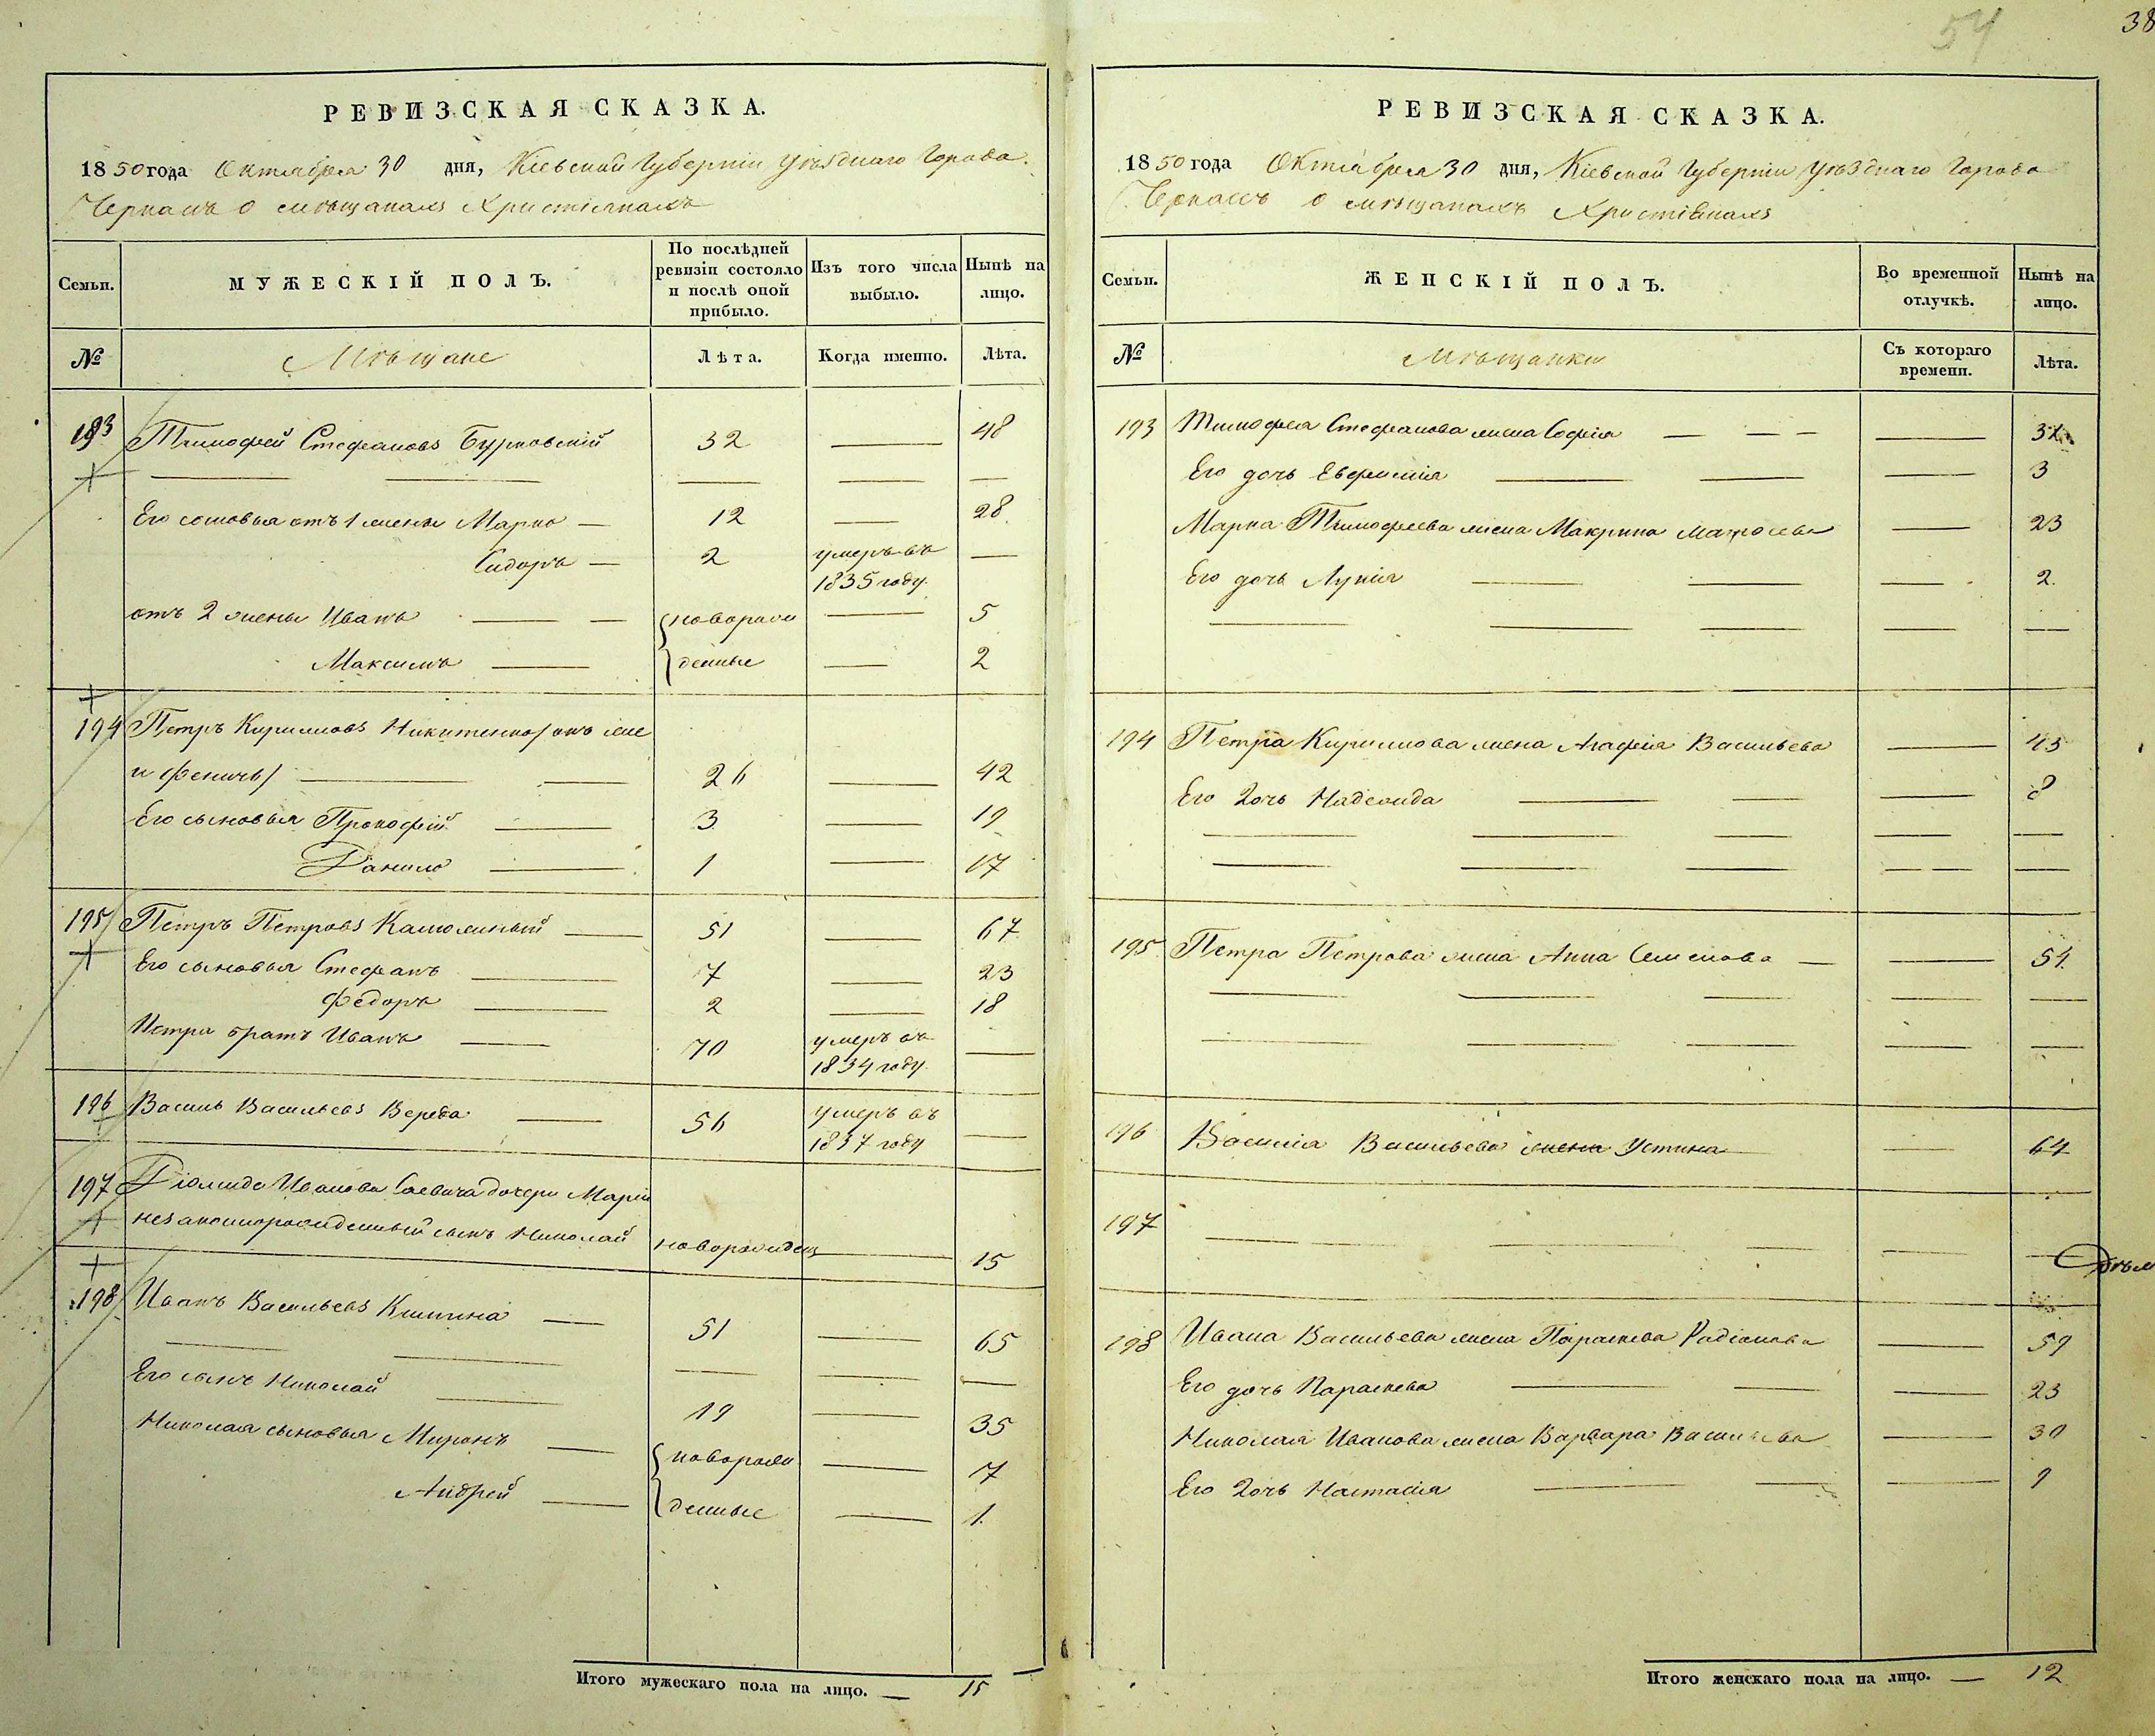 54
38
РЕВИЗСКАЯ СКАЗКА.
1850 года Октября 30 дня, Кіевской Губерніи уѣзднаго Города
Черкасъ о мѣщанахъ Христіянахъ
Семьи.
МУЖЕСКІЙ ПОЛЪ.
По послѣдней ревизіи состояло и послѣ оной прибыло.
Изъ того числа выбыло.
Нынѣ на лицо.
№
Мѣщане
Лѣта.
Когда именно.
Лѣта.
193 Тимофей Стефановъ Бурковскій 32 — 48
Его сыновья отъ 1 жены Марко — 12 — 28
Сидоръ — 2 умеръ въ —
1835 году.
отъ 2 жены Иванъ — — новорож — 5
Максимъ — денные — 2
194 Петръ Кирилловъ Никитенко
— 26 — 42
Его сыновья Прокофій — 3 — 19
Данило — 1 — 17
195 Петръ Петровъ — 51 — 67
Его сыновья Стефанъ — 7 — 23
Федоръ — 2 — 18
Петра братъ Иванъ — 70 умеръ въ —
1834 году.
196 Василь Васильевъ Вереда — 56 умеръ въ —
1837 году
197 Діомида Иванова дочери Маріи
незаконнорожденный сынъ Николай новорожден — 15
198 Иванъ Васильевъ — 51 — 65
Его сынъ Николай — 19 — 35
Николая сыновья Миронъ — новорож — 7
Андрей — денные — 1.
Итого мужескаго пола на лицо. — 15
РЕВИЗСКАЯ СКАЗКА.
1850 года Октября 30 дня, Кіевской Губерніи уѣзднаго Города
Черкасъ о мѣщанахъ Христіянахъ
Семьи.
ЖЕНСКІЙ ПОЛЪ.
Во временной отлучкѣ.
Нынѣ на лицо.
№
Мѣщанки
Съ котораго времени.
Лѣта.
193 Тимофея Стефанова жена Софія — — — —
Его дочь Евфимія — — — 3
Марка Тимофеева жена Макрина — 23
Его дочь Лукія — — — 2.
194 Петра Кириллова жена Агафія Васильева — 43
Его дочь Надежда — — — 8
195. Петра Петрова жена Анна Семенова — — 54.
196 Василія Васильева жена Устина — — 64
197
198 Ивана Васильева жена Параскева Радіонова — 59
Его дочь Параскева — — — 23
Николая Иванова жена Варвара Васильева — 30
Его дочь Настасія — — — 9
Итого женскаго пола на лицо. — 12